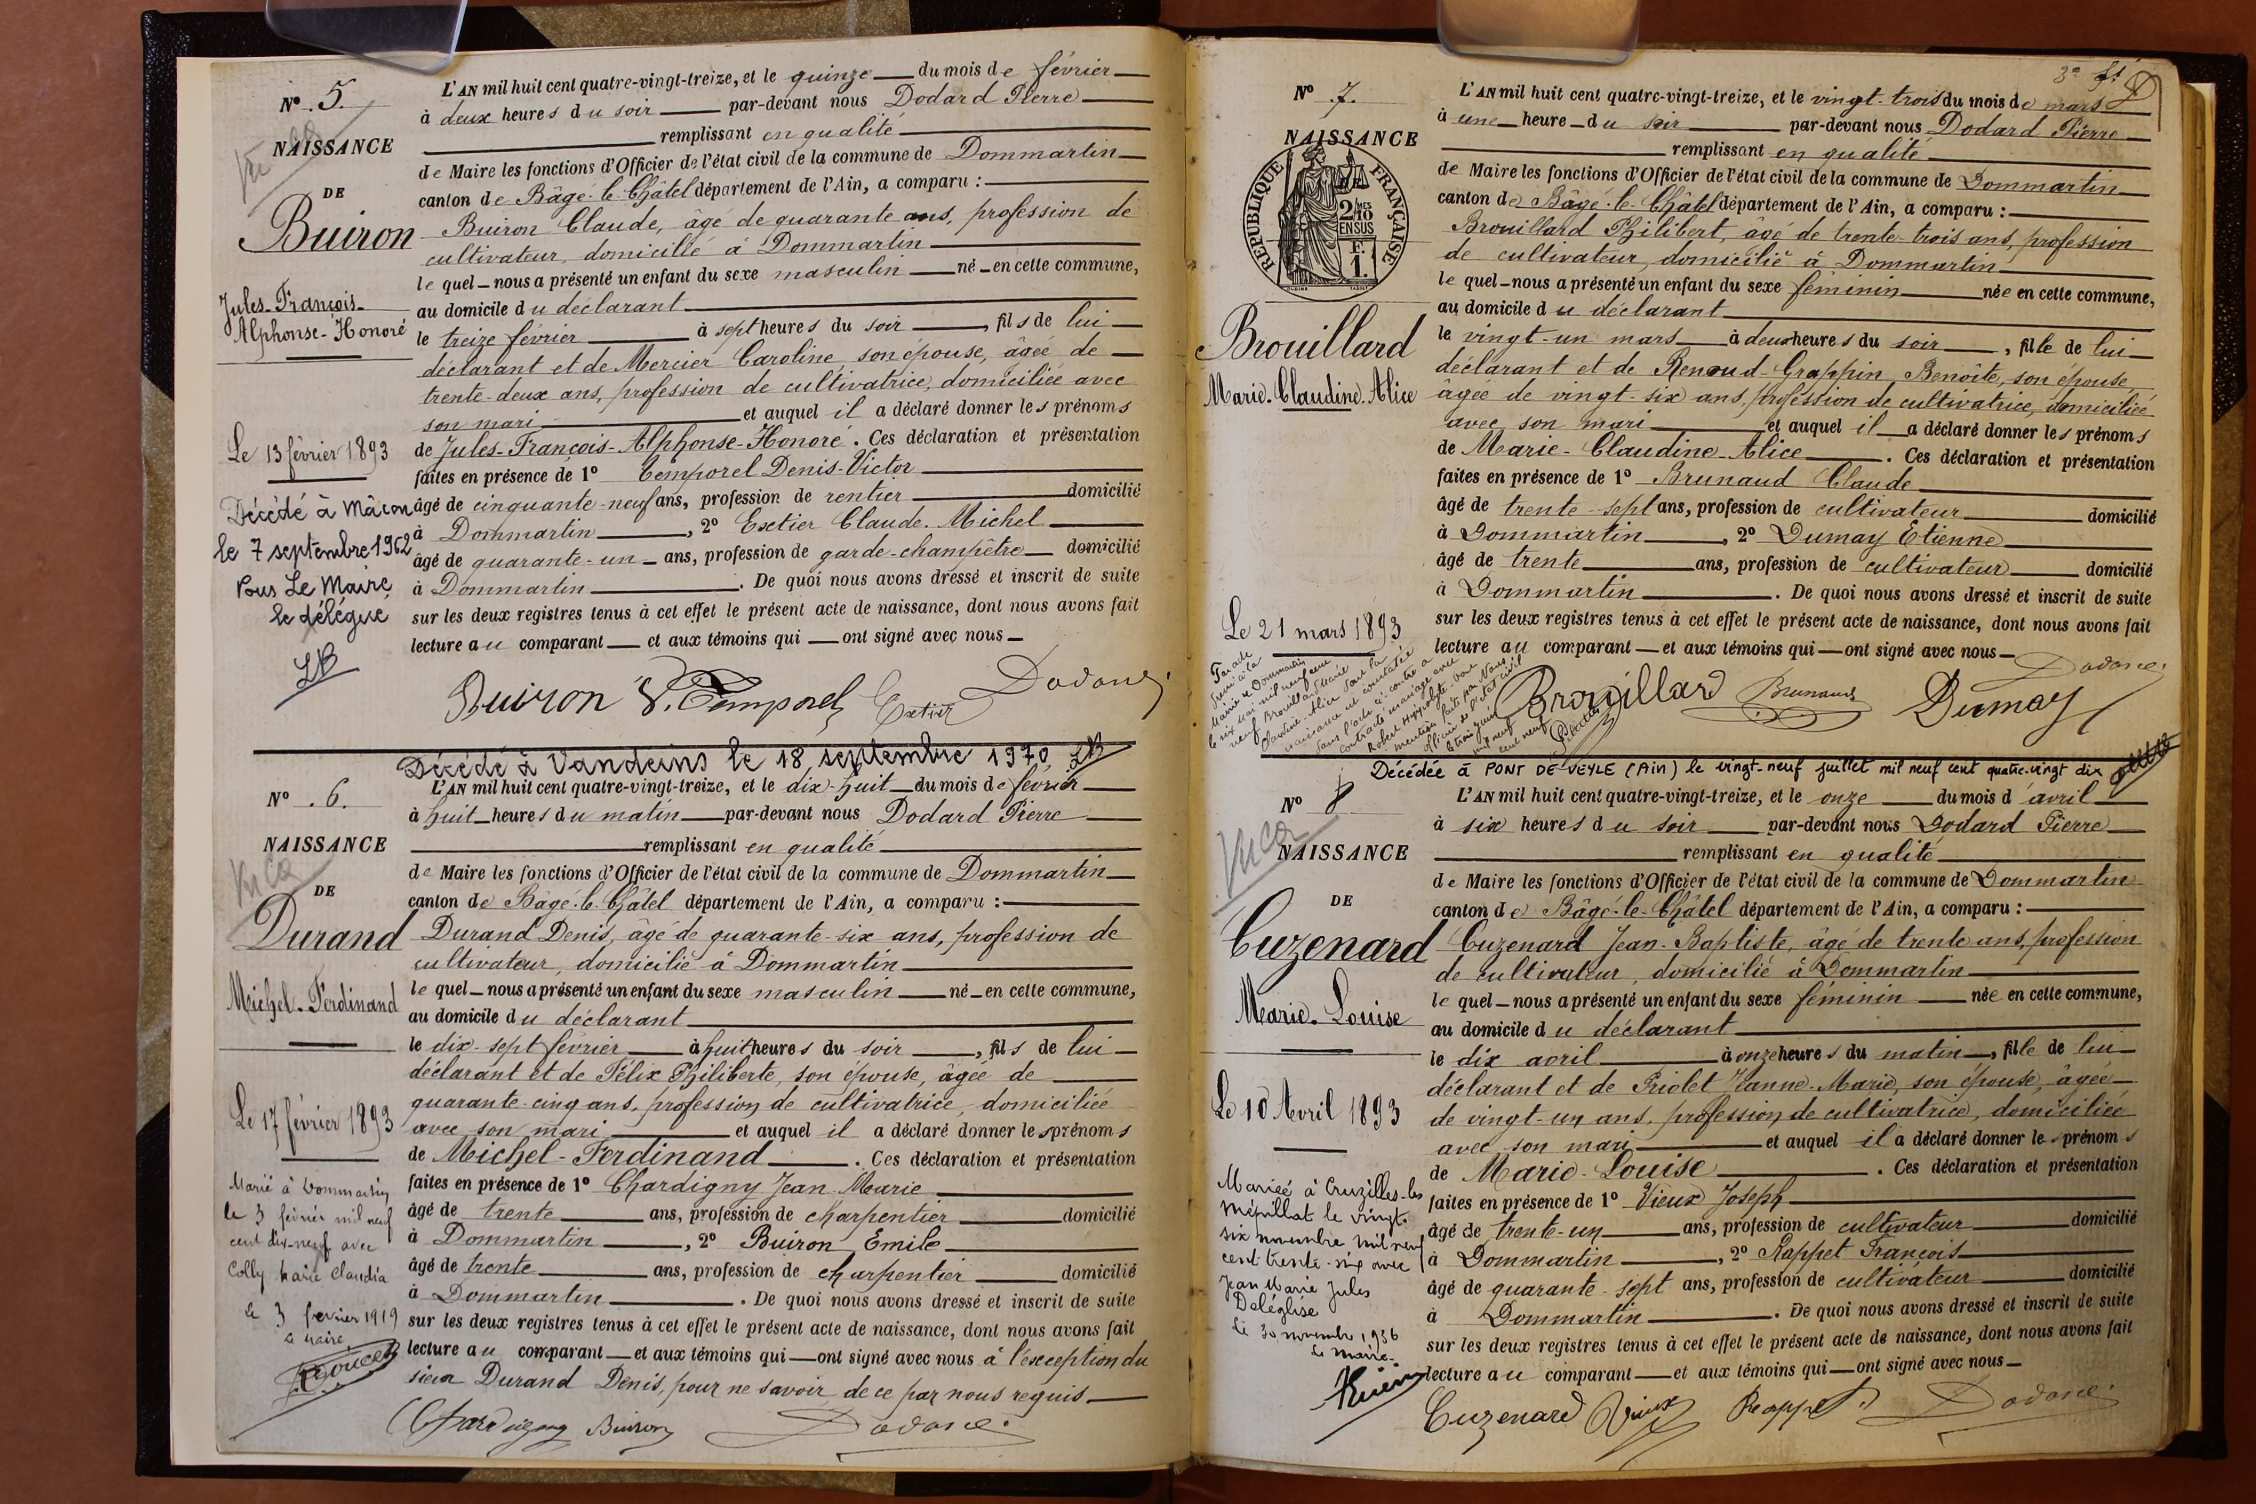 Nº 5.
NAISSANCE
DE
Buiron
Jules-François-
Alphonse-Honoré
Le 13 février 1893
Décédé à Mâcon
le 7 septembre 1962
Pour Le Maire
le délégué
L'AN mil huit cent quatre-vingt-treize, et le quinze du mois de février
à deux heures du soir par-devant nous Dodard Pierre
remplissant en qualité
de Maire les fonctions d'Officier de l'état civil de la commune de Dommartin
canton de Bâgé-le-Châtel département de l'Ain, a comparu :
Buiron Claude, âgé de quarante ans, profession de
cultivateur, domicilié à Dommartin
lequel nous a présenté un enfant du sexe masculin né en cette commune,
au domicile du déclarant
le treize février à sept heures du soir, fils de lui
déclarant et de Mercier Caroline, son épouse, âgée de
trente-deux ans, profession de cultivatrice, domiciliée avec
son mari et auquel il a déclaré donner les prénoms
de Jules-François-Alphonse-Honoré. Ces déclaration et présentation
faites en présence de 1º Temporel Denis-Victor
âgé de cinquante-neuf ans, profession de rentier domicilié
à Dommartin, 2º Exetier Claude-Michel
âgé de quarante-un ans, profession de garde-champêtre domicilié
à Dommartin. De quoi nous avons dressé et inscrit de suite
sur les deux registres tenus à cet effet le présent acte de naissance, dont nous avons fait
lecture au comparant et aux témoins qui ont signé avec nous
Buiron V. Temporel Exetier Dodard
Décédé à Vandeins le 18 septembre 1970
Nº 6.
NAISSANCE
DE
Durand
Michel-Ferdinand
Le 17 février 1893
Marié à Dommartin
le 3 février mil neuf
cent dix-neuf avec
Colly Marie Claudia
le 3 février 1919
le maire
L'AN mil huit cent quatre-vingt-treize, et le dix-huit du mois de février
à huit heures du matin par-devant nous Dodard Pierre
remplissant en qualité
de Maire les fonctions d'Officier de l'état civil de la commune de Dommartin
canton de Bâgé-le-Châtel département de l'Ain, a comparu :
Durand Denis, âgé de quarante-six ans, profession de
cultivateur, domicilié à Dommartin
lequel nous a présenté un enfant du sexe masculin né en cette commune,
au domicile du déclarant
le dix-sept février à huit heures du soir, fils de lui
déclarant et de Félix Philiberte, son épouse, âgée de
quarante-cinq ans, profession de cultivatrice, domiciliée
avec son mari et auquel il a déclaré donner les prénoms
de Michel-Ferdinand. Ces déclaration et présentation
faites en présence de 1º Chardigny Jean Marie
âgé de trente ans, profession de charpentier domicilié
à Dommartin, 2º Buiron Emile
âgé de trente ans, profession de charpentier domicilié
à Dommartin. De quoi nous avons dressé et inscrit de suite
sur les deux registres tenus à cet effet le présent acte de naissance, dont nous avons fait
lecture au comparant et aux témoins qui ont signé avec nous à l'exception du
sieur Durand Denis, pour ne savoir, de ce par nous requis
Chardigny Buiron Dodard
Nº 7.
NAISSANCE
RÉPUBLIQUE FRANÇAISE
2/10 MES
EN SUS
F.
1.
Brouillard
Marie-Claudine-Alice
Le 21 mars 1893
Par acte
mairie de Dommartin
le six mai mil neuf cent
neuf Brouillard Marie
Claudine-Alice dont la
naissance est constatée
dans l'acte ci-contre a
contracté mariage avec
Robert Hyppolyte. Dont
mention faite par Nous
Officier de l'état civil
le trois juin
mil neuf
cent neuf
L'AN mil huit cent quatre-vingt-treize, et le vingt-trois du mois de mars
à une heure du soir par-devant nous Dodard Pierre
remplissant en qualité
de Maire les fonctions d'Officier de l'état civil de la commune de Dommartin
canton de Bâgé-le-Châtel département de l'Ain, a comparu :
Brouillard Philibert, âgé de trente-trois ans, profession
de cultivateur, domicilié à Dommartin
lequel nous a présenté un enfant du sexe féminin née en cette commune,
au domicile du déclarant
le vingt-un mars à deux heures du soir, fille de lui
déclarant et de Renoud-Grappin Benoîte, son épouse,
âgée de vingt-six ans, profession de cultivatrice, domiciliée
avec son mari et auquel il a déclaré donner les prénoms
de Marie-Claudine-Alice. Ces déclaration et présentation
faites en présence de 1º Brunaud Claude
âgé de trente-sept ans, profession de cultivateur domicilié
à Dommartin, 2º Dumay Etienne
âgé de trente ans, profession de cultivateur domicilié
à Dommartin. De quoi nous avons dressé et inscrit de suite
sur les deux registres tenus à cet effet le présent acte de naissance, dont nous avons fait
lecture au comparant et aux témoins qui ont signé avec nous
Dodard
Brouillard Brunaud Dumay
Décédée à PONT DE VEYLE (Ain) le vingt-neuf juillet mil neuf cent quatre-vingt dix
Nº 8
NAISSANCE
DE
Cuzenard
Marie-Louise
Le 10 Avril 1893
Mariée à Cruzilles-les
Mépillat le vingt-
six novembre mil neuf
cent trente-six avec
Jean Marie Jules
Deléglise
Le 30 novembre 1936
Le Maire
L'AN mil huit cent quatre-vingt-treize, et le onze du mois d'avril
à six heures du soir par-devant nous Dodard Pierre
remplissant en qualité
de Maire les fonctions d'Officier de l'état civil de la commune de Dommartin
canton de Bâgé-le-Châtel département de l'Ain, a comparu :
Cuzenard Jean-Baptiste, âgé de trente ans, profession
de cultivateur, domicilié à Dommartin
lequel nous a présenté un enfant du sexe féminin née en cette commune,
au domicile du déclarant
le dix avril à onze heures du matin, fille de lui
déclarant et de Priolet Jeanne-Marie, son épouse, âgée
de vingt-un ans, profession de cultivatrice, domiciliée
avec son mari et auquel il a déclaré donner les prénoms
de Marie-Louise. Ces déclaration et présentation
faites en présence de 1º Vieux Joseph
âgé de trente-un ans, profession de cultivateur domicilié
à Dommartin, 2º Rappet François
âgé de quarante-sept ans, profession de cultivateur domicilié
à Dommartin. De quoi nous avons dressé et inscrit de suite
sur les deux registres tenus à cet effet le présent acte de naissance, dont nous avons fait
lecture au comparant et aux témoins qui ont signé avec nous
Cuzenard Vieux Rappet Dodard